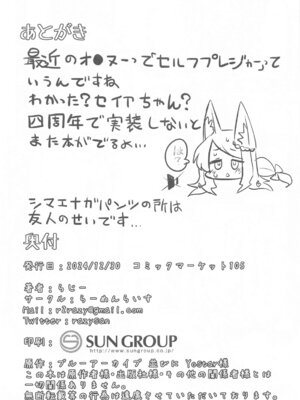 あとがき
最近のオ●ヌーってセルフプレジャーって
いうんですね
わかった?セイアちゃん?
四周年で実装しないと
また本がでるよ…
は?
シマエナガパンツの所は
友人のせいです…
奥付
発行日:2024/12/30 コミックマーケット105
著者:らじー
サークル:らーめんらいす
Mail:r2razy@gmail.com
Twitter:razysan
印刷:SUN GROUP
http://www.sungroup.co.jp/
原作:ブルーアーカイブ 並びに Yostar様
この本は原作者様・出版社様・その他の関係者様とは
一切関係ありません。
無断転載等の行為は遠慮させていただいております。